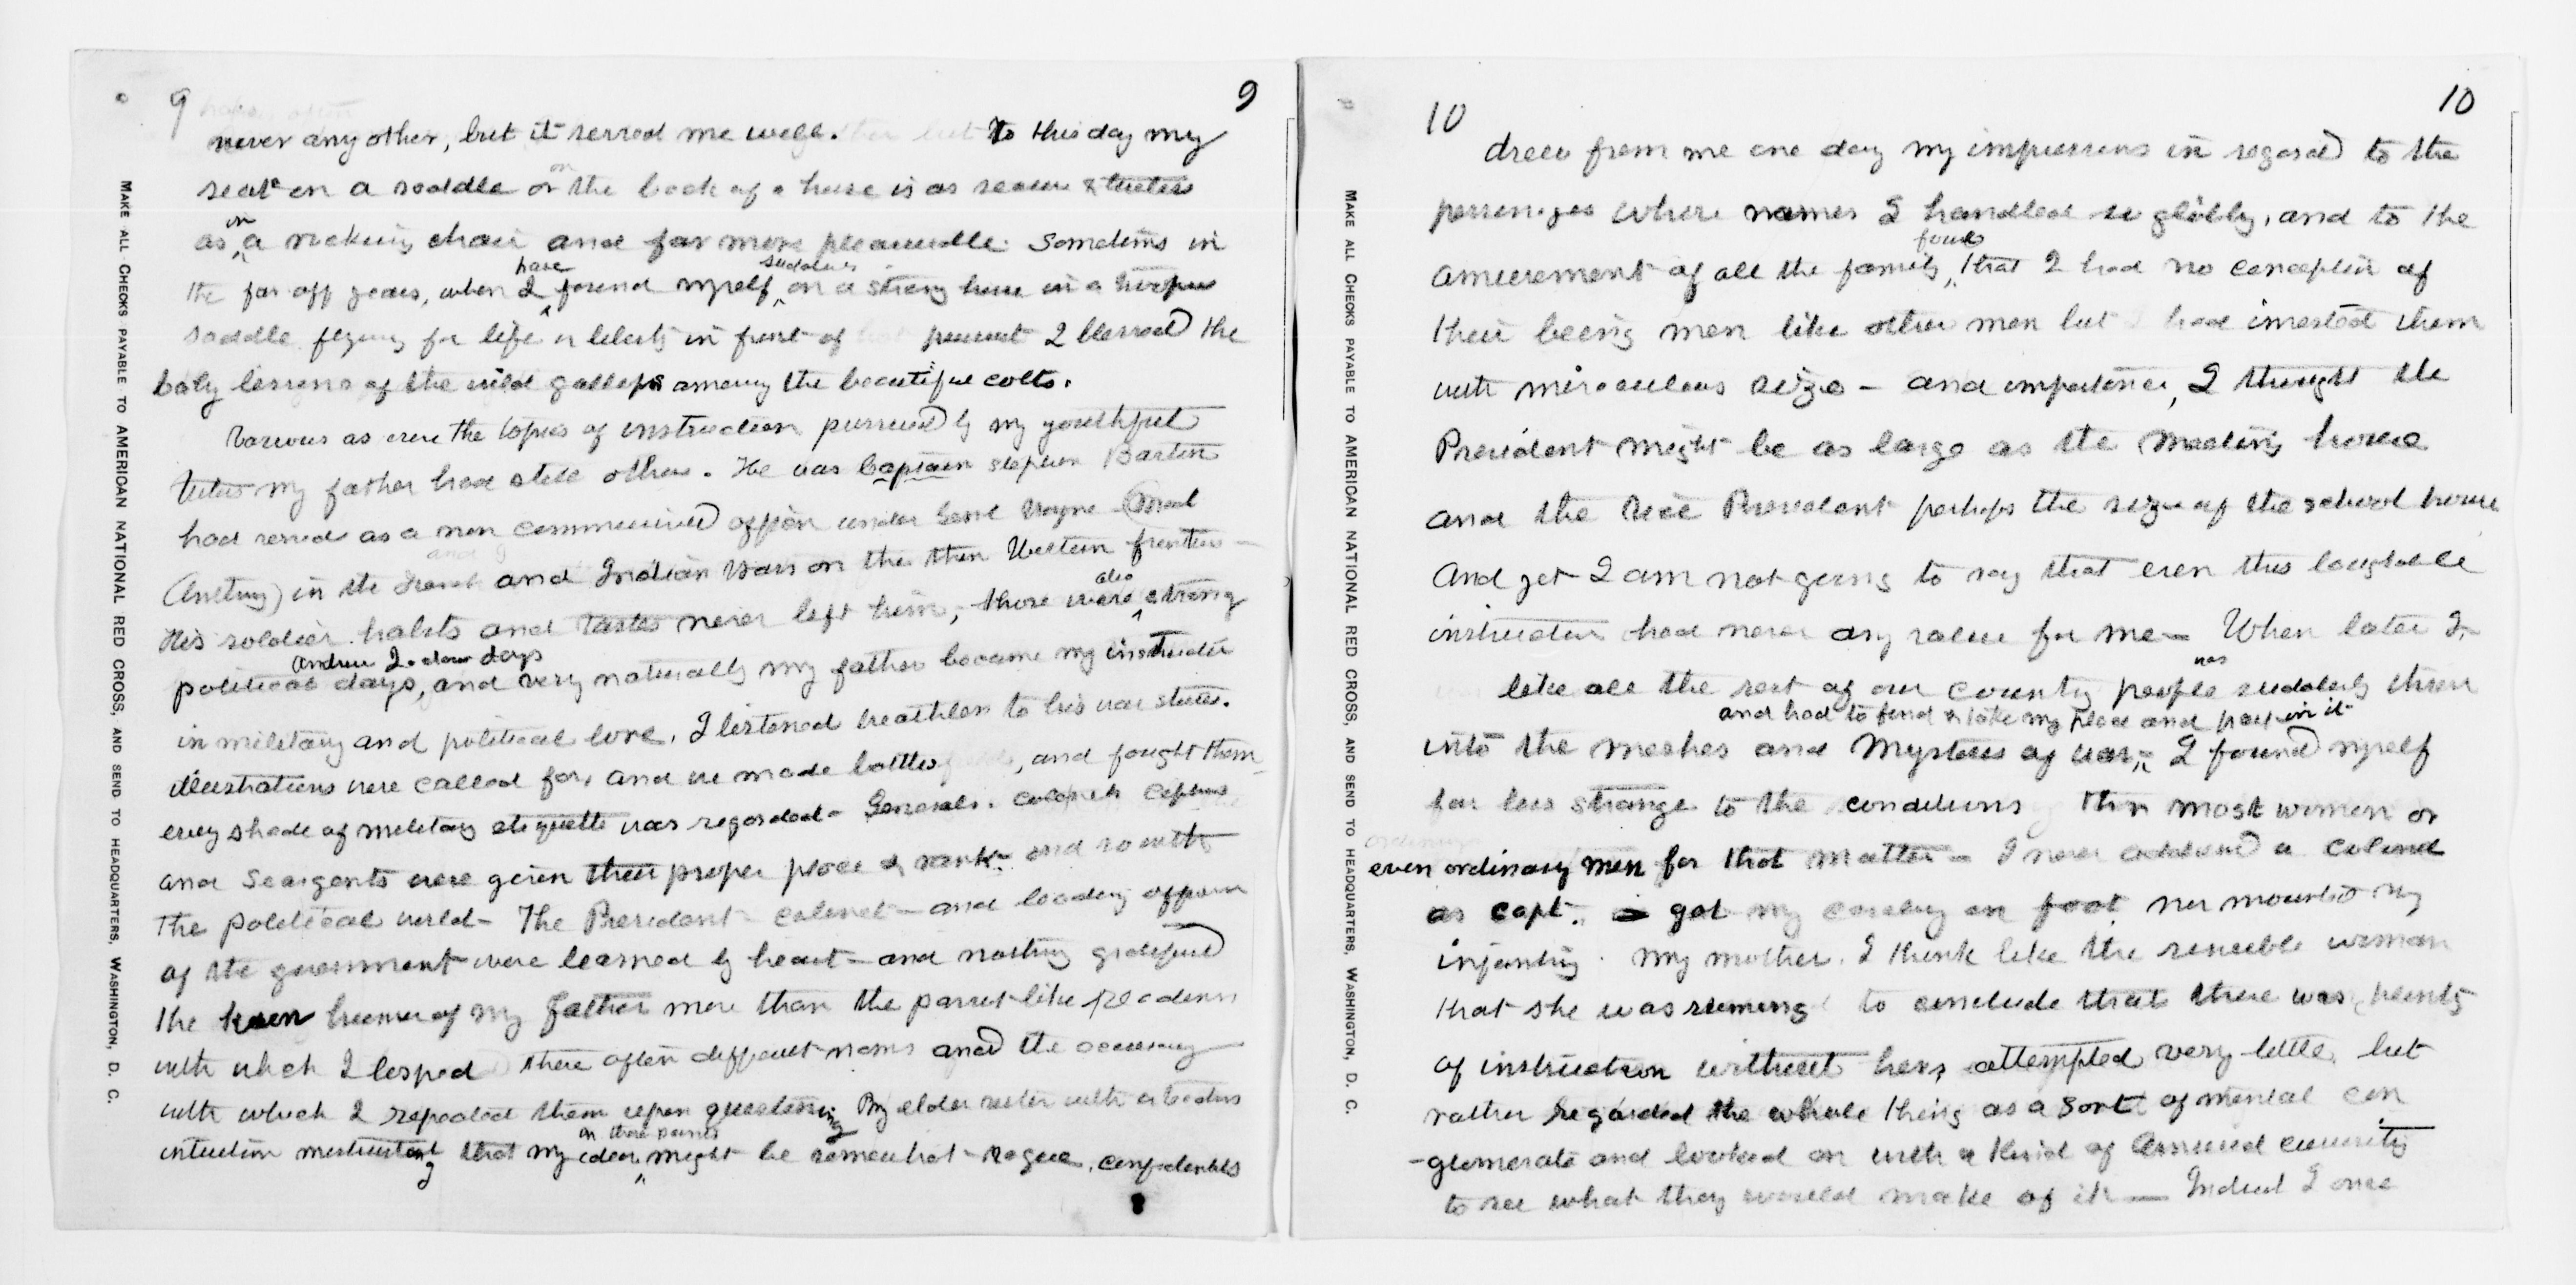 9
9
never any other, but it served me well. To this day my
on
seat on a saddle or the back of a horse is as secure & tireless
in
as a rocking chair and far more pleasurable. Sometimes in
have suddenly
the far off years, when I found myself on a strong horse in a trooper
saddle flying for life or liberty in front of pursuit I blessed the
baby lessons of the wild gallops among the beautiful colts.
Various as were the topics of instruction pursued by my youthful
tutors my father had still others. He was Captain Stephen Barton
had served as a non commissioned officer under Genl Wayne (Mad
Anthony) in the French and Indian Wars on the then Western frontiers —
also
His soldier habits and tastes never left him, those were strong
Andrew Jackson days
political days, and very naturally my father became my instructor
in military and political lore. I listened breathless to his war stories.
illustrations were called for, and we made battles, and fought them
every shade of military etiquette was regarded — Generals. Colonels Captains
and Seargents were given their proper place & rank — and so with
the political world — The President cabinet — and leading officers
of the government were learned by heart — and nothing gratified
the keen humor of my father more than the parrot-like readiness
with which I lisped these often difficult names and the accuracy
with which I repeated them upon questioning My elder sister with a teachers
on these points
intuition mistrusting that my ideas might be somewhat vague, confidentially
MAKE ALL CHECKS PAYABLE TO AMERICAN NATIONAL RED CROSS, AND SEND TO HEADQUARTERS, WASHINGTON, D. C.
10
10
drew from me one day my impressions in regard to the
personages whose names I handled so glibly, and to the
found
amusement of all the family, that I had no conception of
their being men like other men but had invested them
with miraculous size — and importance, I thought the
President might be as large as the Meeting house
and the Vice President perhaps the size of the school house
And yet I am not going to say that even this laughable
instruction had never any value for me — When later I,
was
like all the rest of our country people suddenly thrown
and had to find & take my place and part in it
into the meshes and mysteries of war, I found myself
far less strange to the conditions than most women or
ordinary
even ordinary men for that matter — I never addressed a colonel
as capt. got my cavalry on foot nor mounted my
infantry. My mother. I think like the sensible woman
that she was seeming to conclude that there was plenty
of instruction without hers, attempted very little, but
rather regarded the whole thing as a sort of mental con
-glomerate and looked on with a kind of amused curiosity
to see what they would make of it — Indeed I once
MAKE ALL CHECKS PAYABLE TO AMERICAN NATIONAL RED CROSS, AND SEND TO HEADQUARTERS, WASHINGTON, D. C.